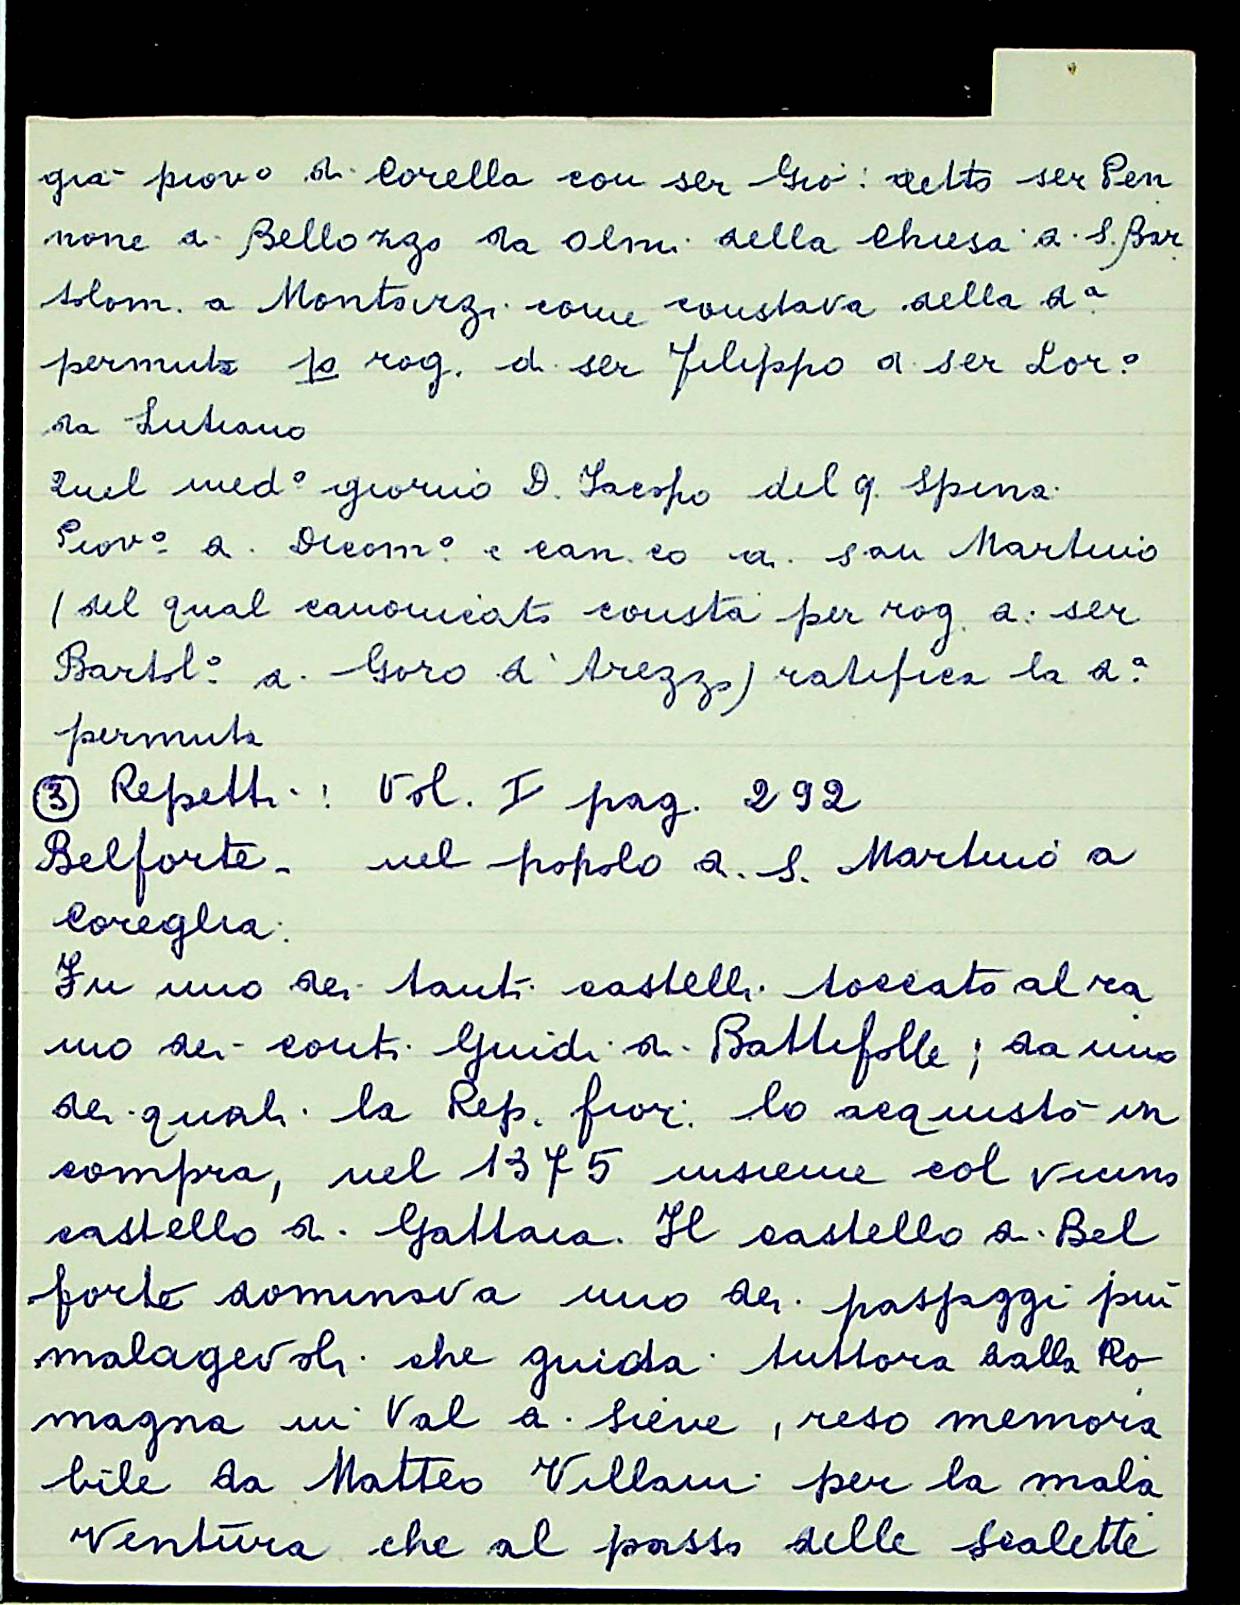 già piov° di Corella con ser Gio: detto ser Pen
none di Bellozzo da Olmi della Chiesa di S. Bar
tolom. a Montavzi come constava della d.ª
permuta p rog. di ser Filippo di ser Lor.°
da Lutiano
Quel med° giorno D. Jacopo del q. Spina
Piov.° di Dicom.° e can.co di san Martino
(del qual canonicato consta per rog. di ser
Bartol.° di Goro d'Arezzo) ratifica la d.ª
permuta
③ Repetti: Vol. I pag. 292
Belforte - nel popolo di S. Martino a
Coreglia.
Fu uno dei tanti castelli toccato al ra
mo dei conti Guidi di Battifolle; da uno
dei quali la Rep. fior. lo acquistò in
compra, nel 1375 insieme col vicino
castello di Gattaia. Il castello di Bel
forte dominava uno dei passaggi più
malagevoli che guida tuttora dalla Ro
magna in Val di Sieve, reso memora
bile da Matteo Villani per la mala
ventura che al passo delle Scalette